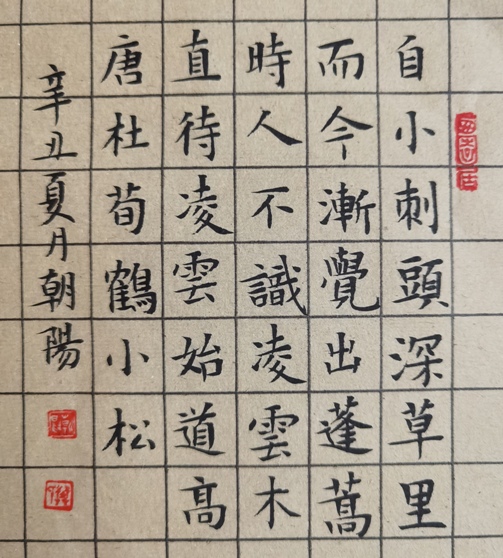 自小刺頭深草里
而今漸覺出蓬蒿
時人不識凌雲木
直待凌雲始道高
唐杜荀鶴小松
辛丑夏月朝陽